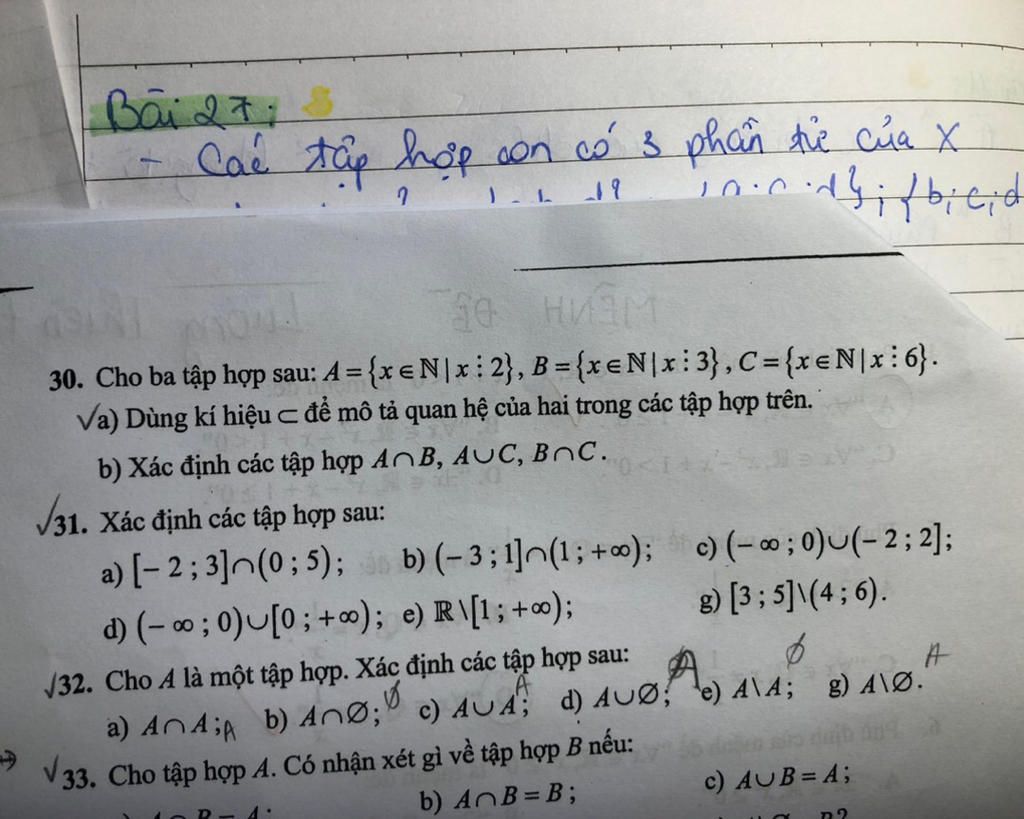 Bài 27:
- Các tập hợp con có 3 phần tử của X
{b; c; d
30. Cho ba tập hợp sau: A = {x ∈ ℕ | x ⋮ 2}, B = {x ∈ ℕ | x ⋮ 3}, C = {x ∈ ℕ | x ⋮ 6}.
√a) Dùng kí hiệu ⊂ để mô tả quan hệ của hai trong các tập hợp trên.
b) Xác định các tập hợp A∩B, A∪C, B∩C.
√31. Xác định các tập hợp sau:
a) [– 2 ; 3]∩(0 ; 5); b) (– 3 ; 1]∩(1 ; +∞); c) (– ∞ ; 0)∪(– 2 ; 2];
d) (– ∞ ; 0)∪[0 ; +∞); e) ℝ\[1 ; +∞); g) [3 ; 5]\(4 ; 6).
√32. Cho A là một tập hợp. Xác định các tập hợp sau:
a) A∩A; A b) A∩∅; ∅ c) A∪A; A d) A∪∅; A e) A\A; ∅ g) A\∅. A
√33. Cho tập hợp A. Có nhận xét gì về tập hợp B nếu:
b) A∩B = B; c) A∪B = A;